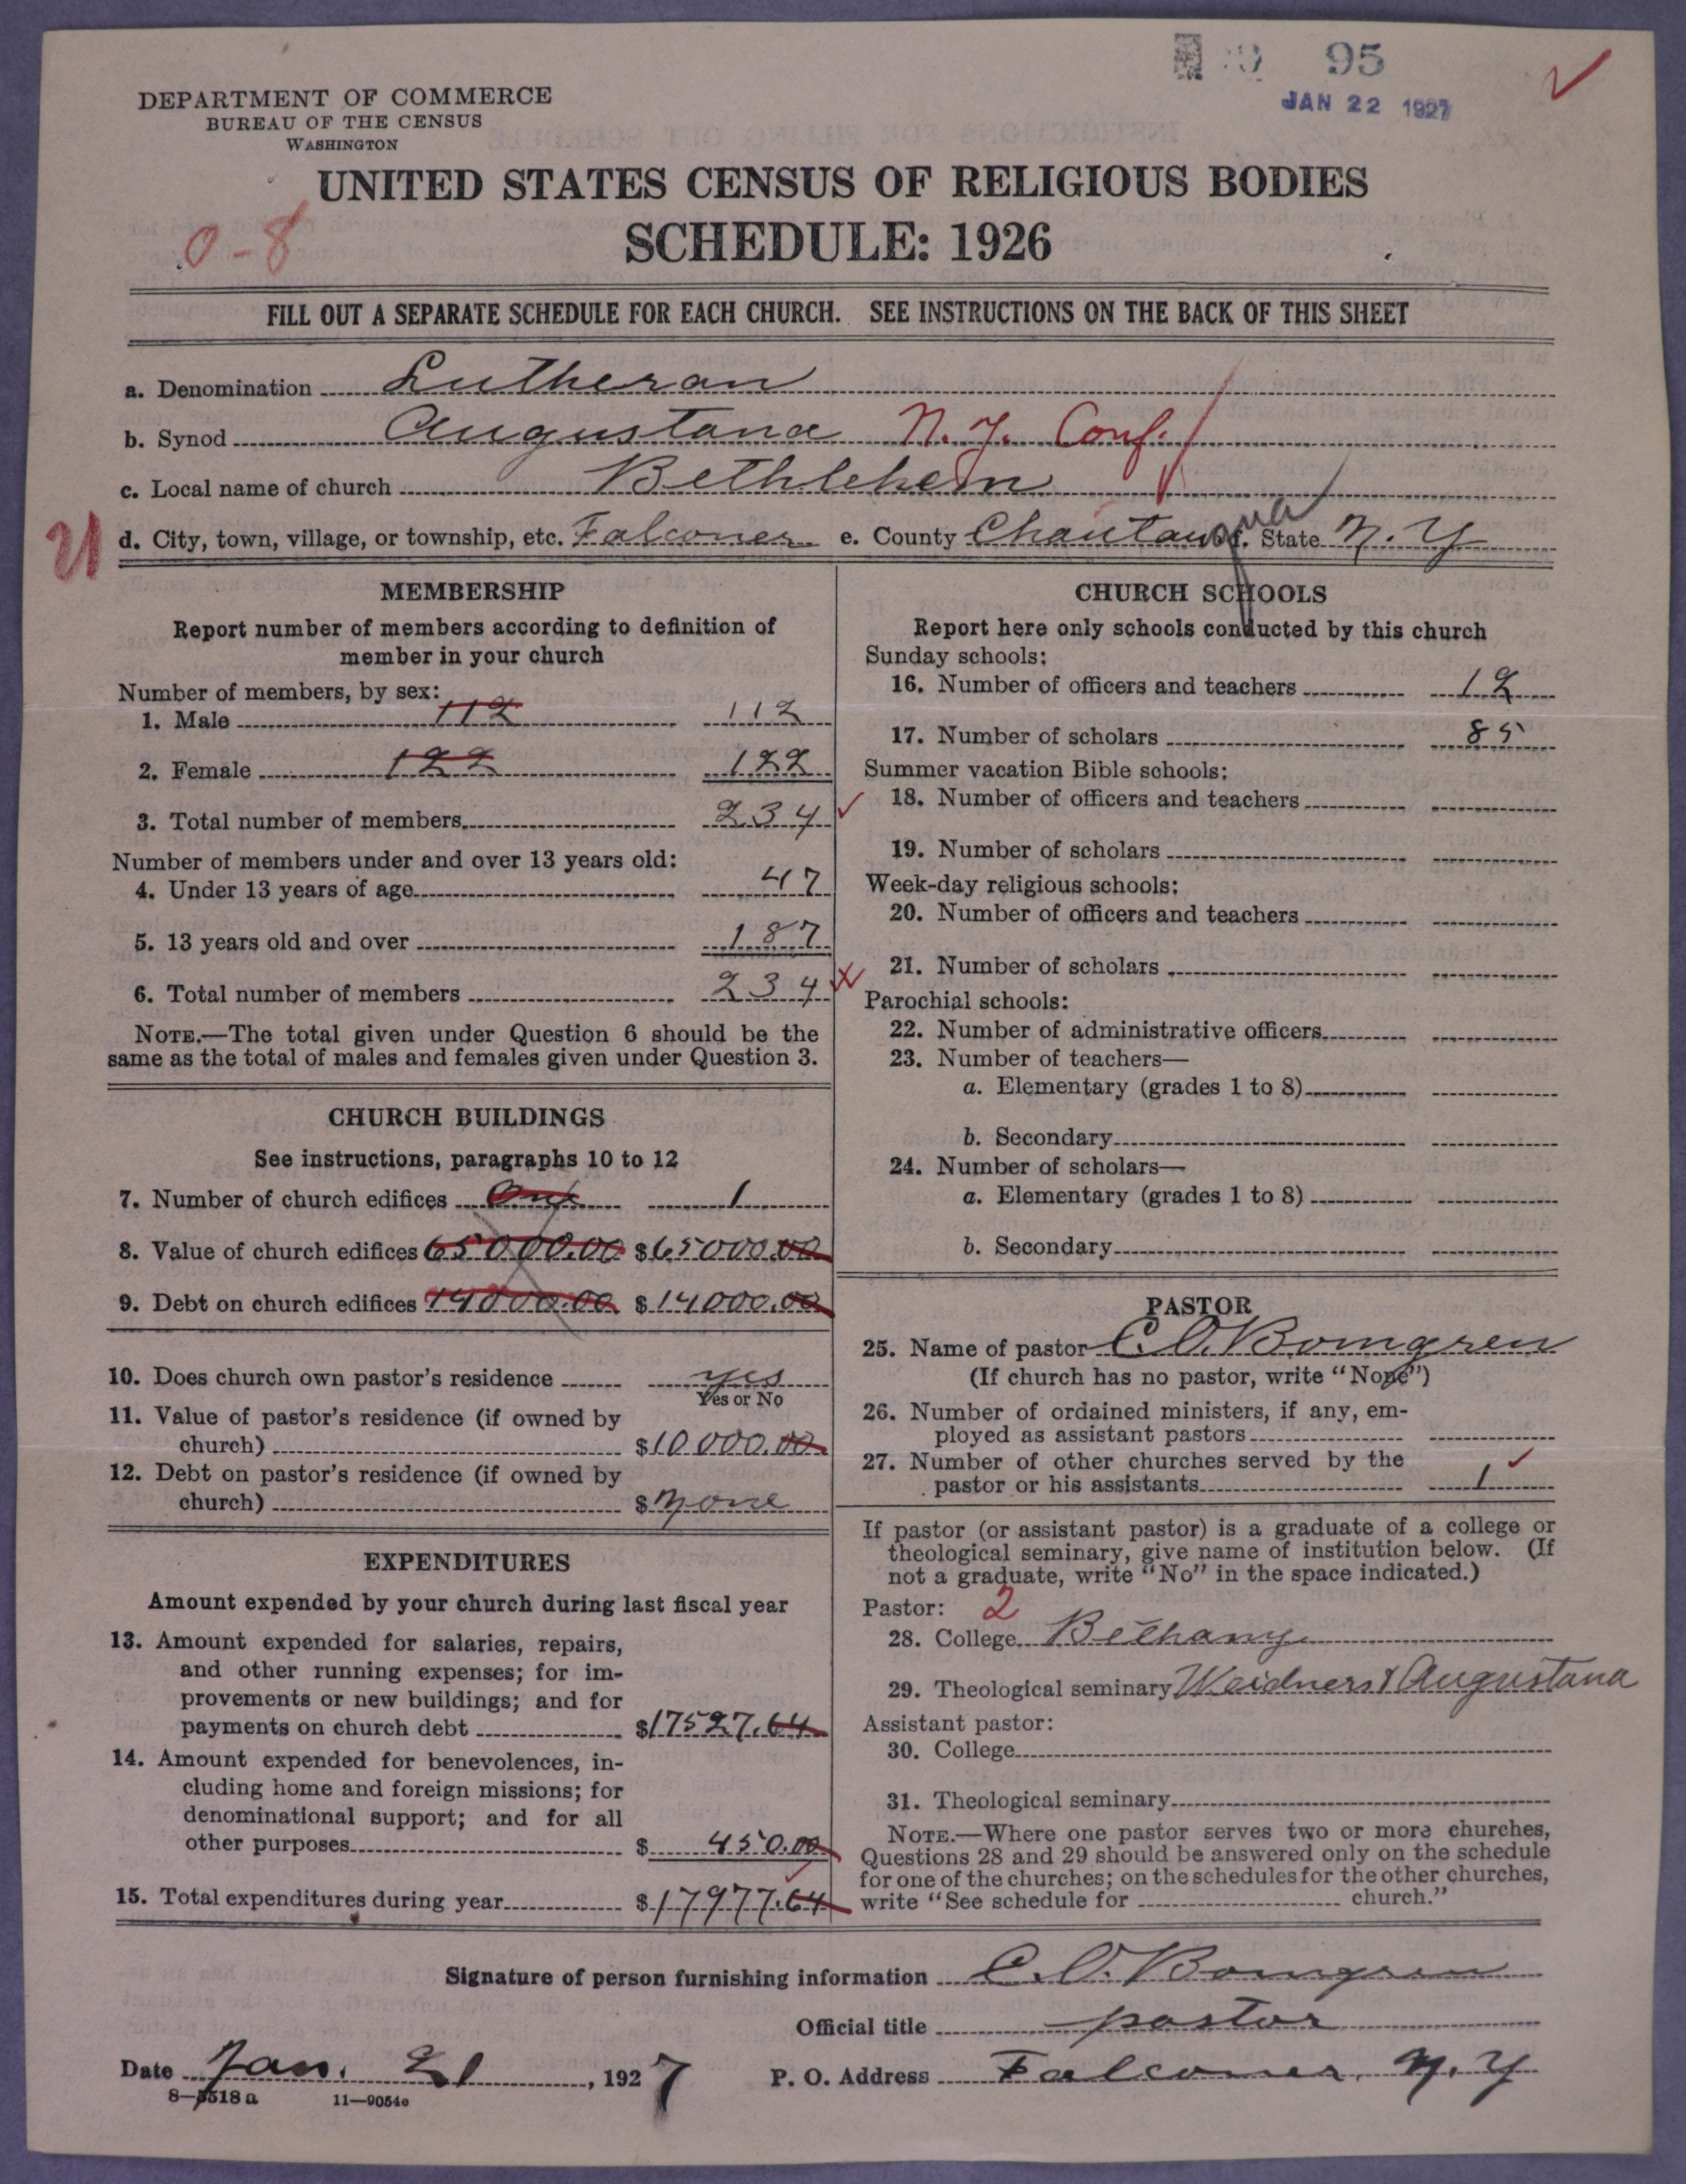 95
JAN 22 1927
DEPARTMENT OF COMMERCE
BUREAU OF THE CENSUS
WASHINGTON
UNITED STATES CENSUS OF RELIGIOUS BODIES
SCHEDULE: 1926
0-8
FILL OUT A SEPARATE SCHEDULE FOR EACH CHURCH. SEE INSTRUCTIONS ON THE BACK OF THIS SHEET
a. Denomination Lutheran
b. Synod Augustana N.Y. Conf.
c. Local name of church Bethlehem
21
d. City, town, village, or township, etc. Falconer e. County Chautauqua f. State N.Y
MEMBERSHIP
Report number of members according to definition of
member in your church
Number of members, by sex:
1. Male 112 112
2. Female 122 122
3. Total number of members 234
Number of members under and over 13 years old:
4. Under 13 years of age 47
5. 13 years old and over 187
6. Total number of members 234
NOTE.—The total given under Question 6 should be the
same as the total of males and females given under Question 3.
CHURCH BUILDINGS
See instructions, paragraphs 10 to 12
7. Number of church edifices One 1
8. Value of church edifices 65000.00 $65000.00
9. Debt on church edifices 14000.00 $14000.00
10. Does church own pastor's residence yes
Yes or No
11. Value of pastor's residence (if owned by
church) $10000.00
12. Debt on pastor's residence (if owned by
church) $none
EXPENDITURES
Amount expended by your church during last fiscal year
13. Amount expended for salaries, repairs,
and other running expenses; for im-
provements or new buildings; and for
payments on church debt $17527.64
14. Amount expended for benevolences, in-
cluding home and foreign missions; for
denominational support; and for all
other purposes $450.00
15. Total expenditures during year $17977.64
CHURCH SCHOOLS
Report here only schools conducted by this church
Sunday schools:
16. Number of officers and teachers 12
17. Number of scholars 85
Summer vacation Bible schools:
18. Number of officers and teachers
19. Number of scholars
Week-day religious schools:
20. Number of officers and teachers
21. Number of scholars
Parochial schools:
22. Number of administrative officers
23. Number of teachers—
a. Elementary (grades 1 to 8)
b. Secondary
24. Number of scholars—
a. Elementary (grades 1 to 8)
b. Secondary
PASTOR
25. Name of pastor C.O. Bomgren
(If church has no pastor, write "None")
26. Number of ordained ministers, if any, em-
ployed as assistant pastors
27. Number of other churches served by the
pastor or his assistants 1
If pastor (or assistant pastor) is a graduate of a college or
theological seminary, give name of institution below. (If
not a graduate, write "No" in the space indicated.)
Pastor: 2
28. College Bethany
29. Theological seminary Weidners & Augustana
Assistant pastor:
30. College
31. Theological seminary
NOTE.—Where one pastor serves two or more churches,
Questions 28 and 29 should be answered only on the schedule
for one of the churches; on the schedules for the other churches,
write "See schedule for church."
Signature of person furnishing information C.O. Bomgren
Official title pastor
Date Jan. 21, 1927 P. O. Address Falconer, N.Y
8—5518 a 11—9054c